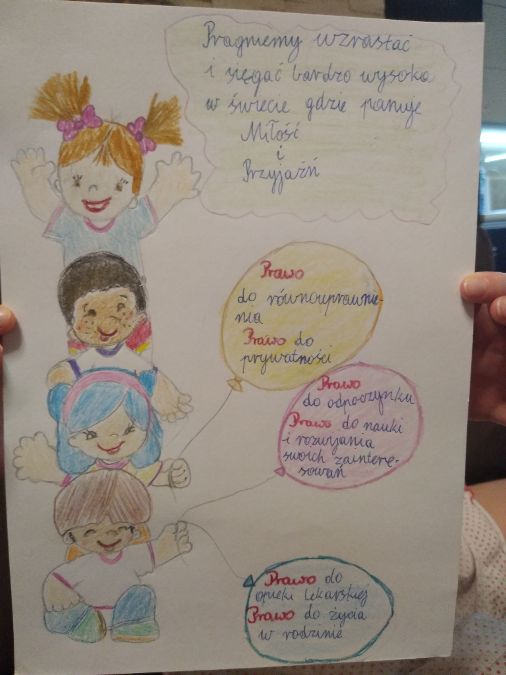 Pragniemy wzrastać
i sięgać bardzo wysoko
w świecie gdzie panuje
Miłość
i
Przyjaźń
Prawo
do równouprawnie-
nia
Prawo do
prywatności
Prawo
do odpoczynku
Prawo do nauki
i rozwijania
swoich zaintere-
sowań
Prawo do
opieki lekarskiej
Prawo do życia
w rodzinie